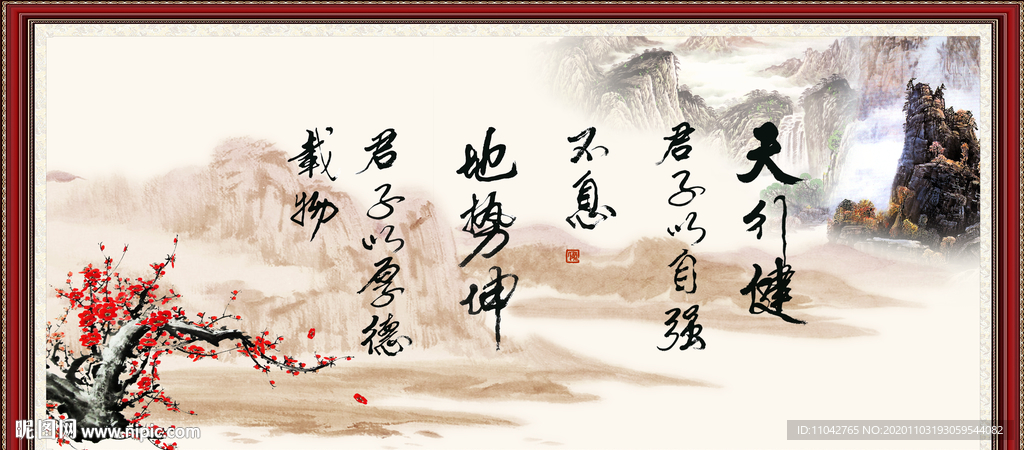 天行健
君子以自强
不息
地势坤
君子以厚德
载物
昵图网 www.nipic.com
ID:11042765 NO:20201103193059544082